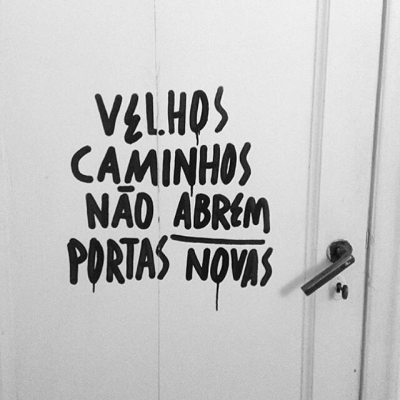 VELHOS
CAMINHOS
NÃO ABREM
PORTAS NOVAS